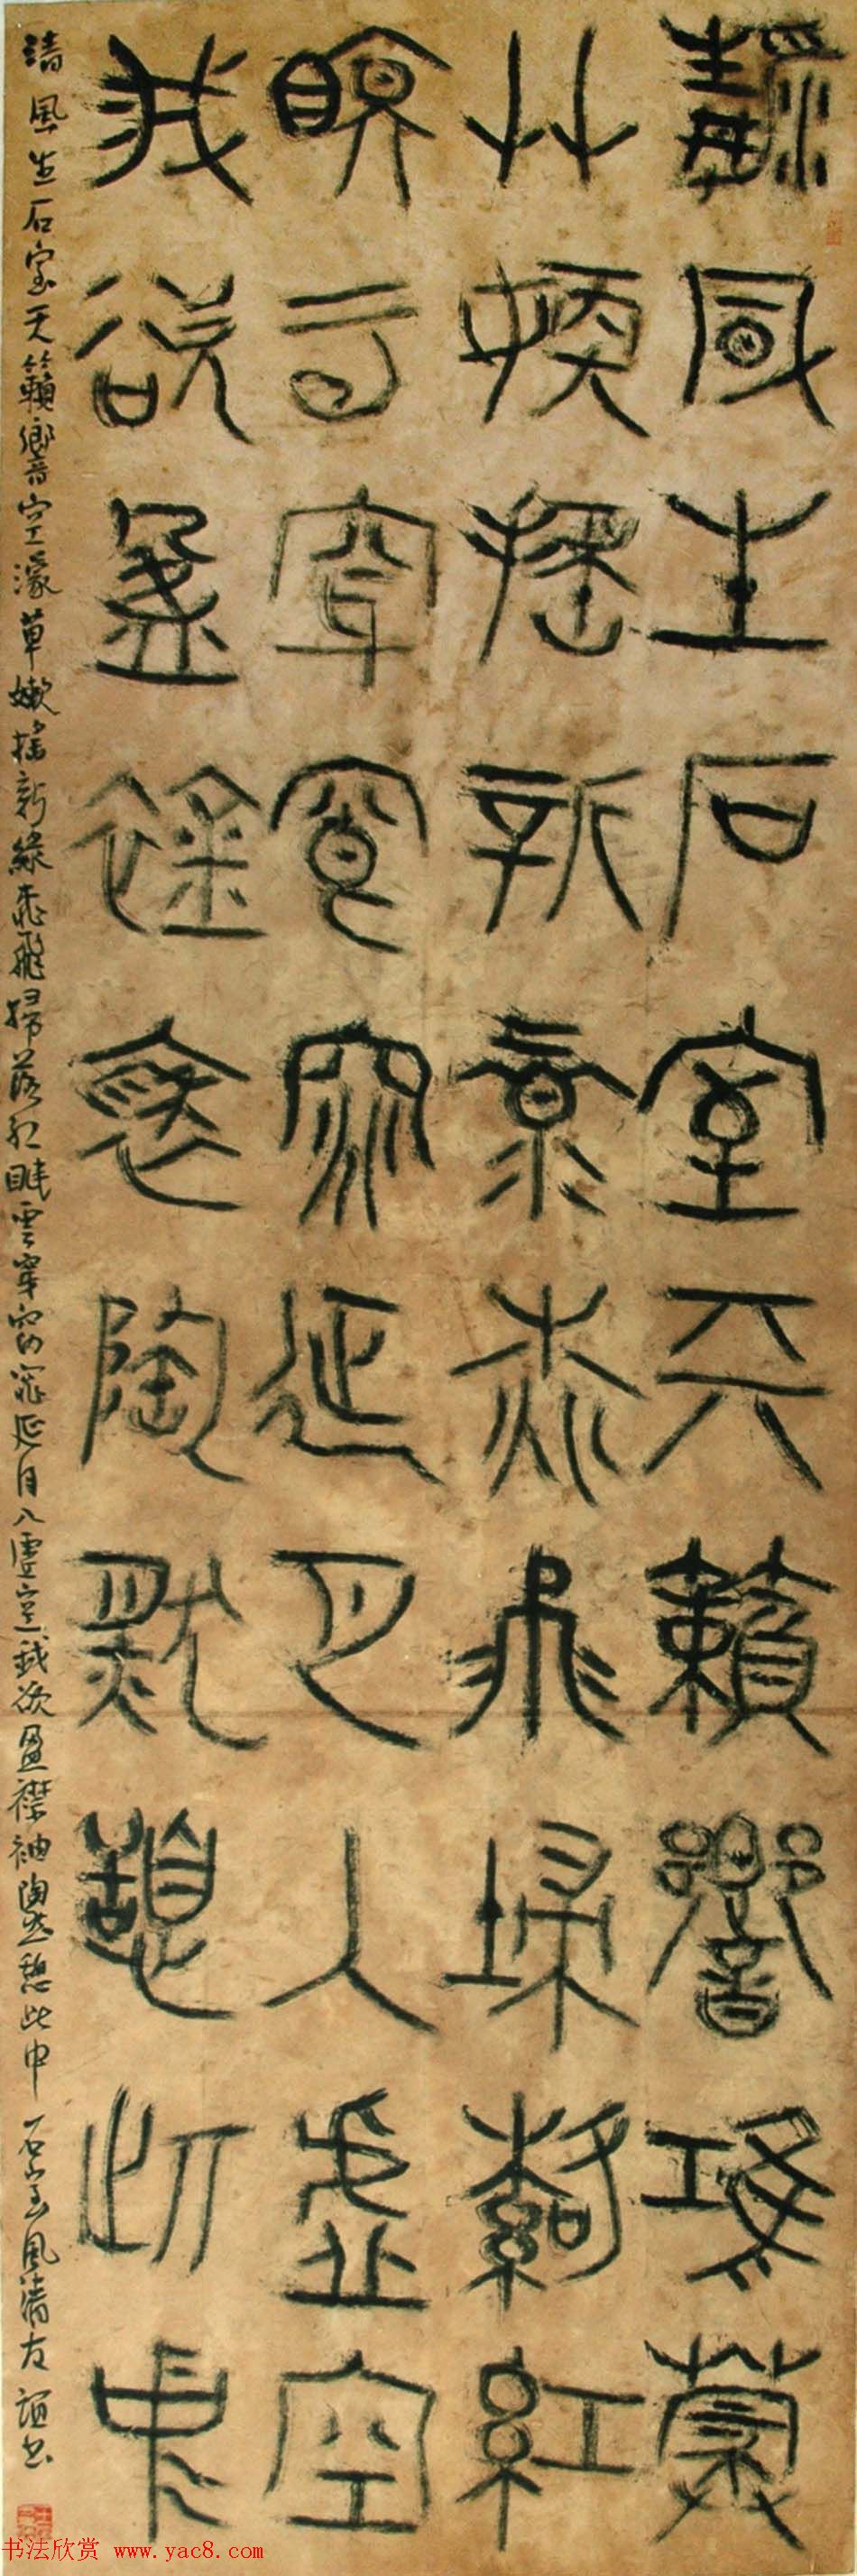 清風生石室天籟響空濛
草嫩搖新綠花飛掃落紅
眠雲穿窈窕延月入虛空
我欲盈襟袖陶然憩此中
清風生石室天籟響空濛草嫩搖新綠花飛掃落紅眠雲穿窈窕延月入虛空我欲盈襟袖陶然憩此中 石室風清 友誼書
书法欣赏 www.yac8.com